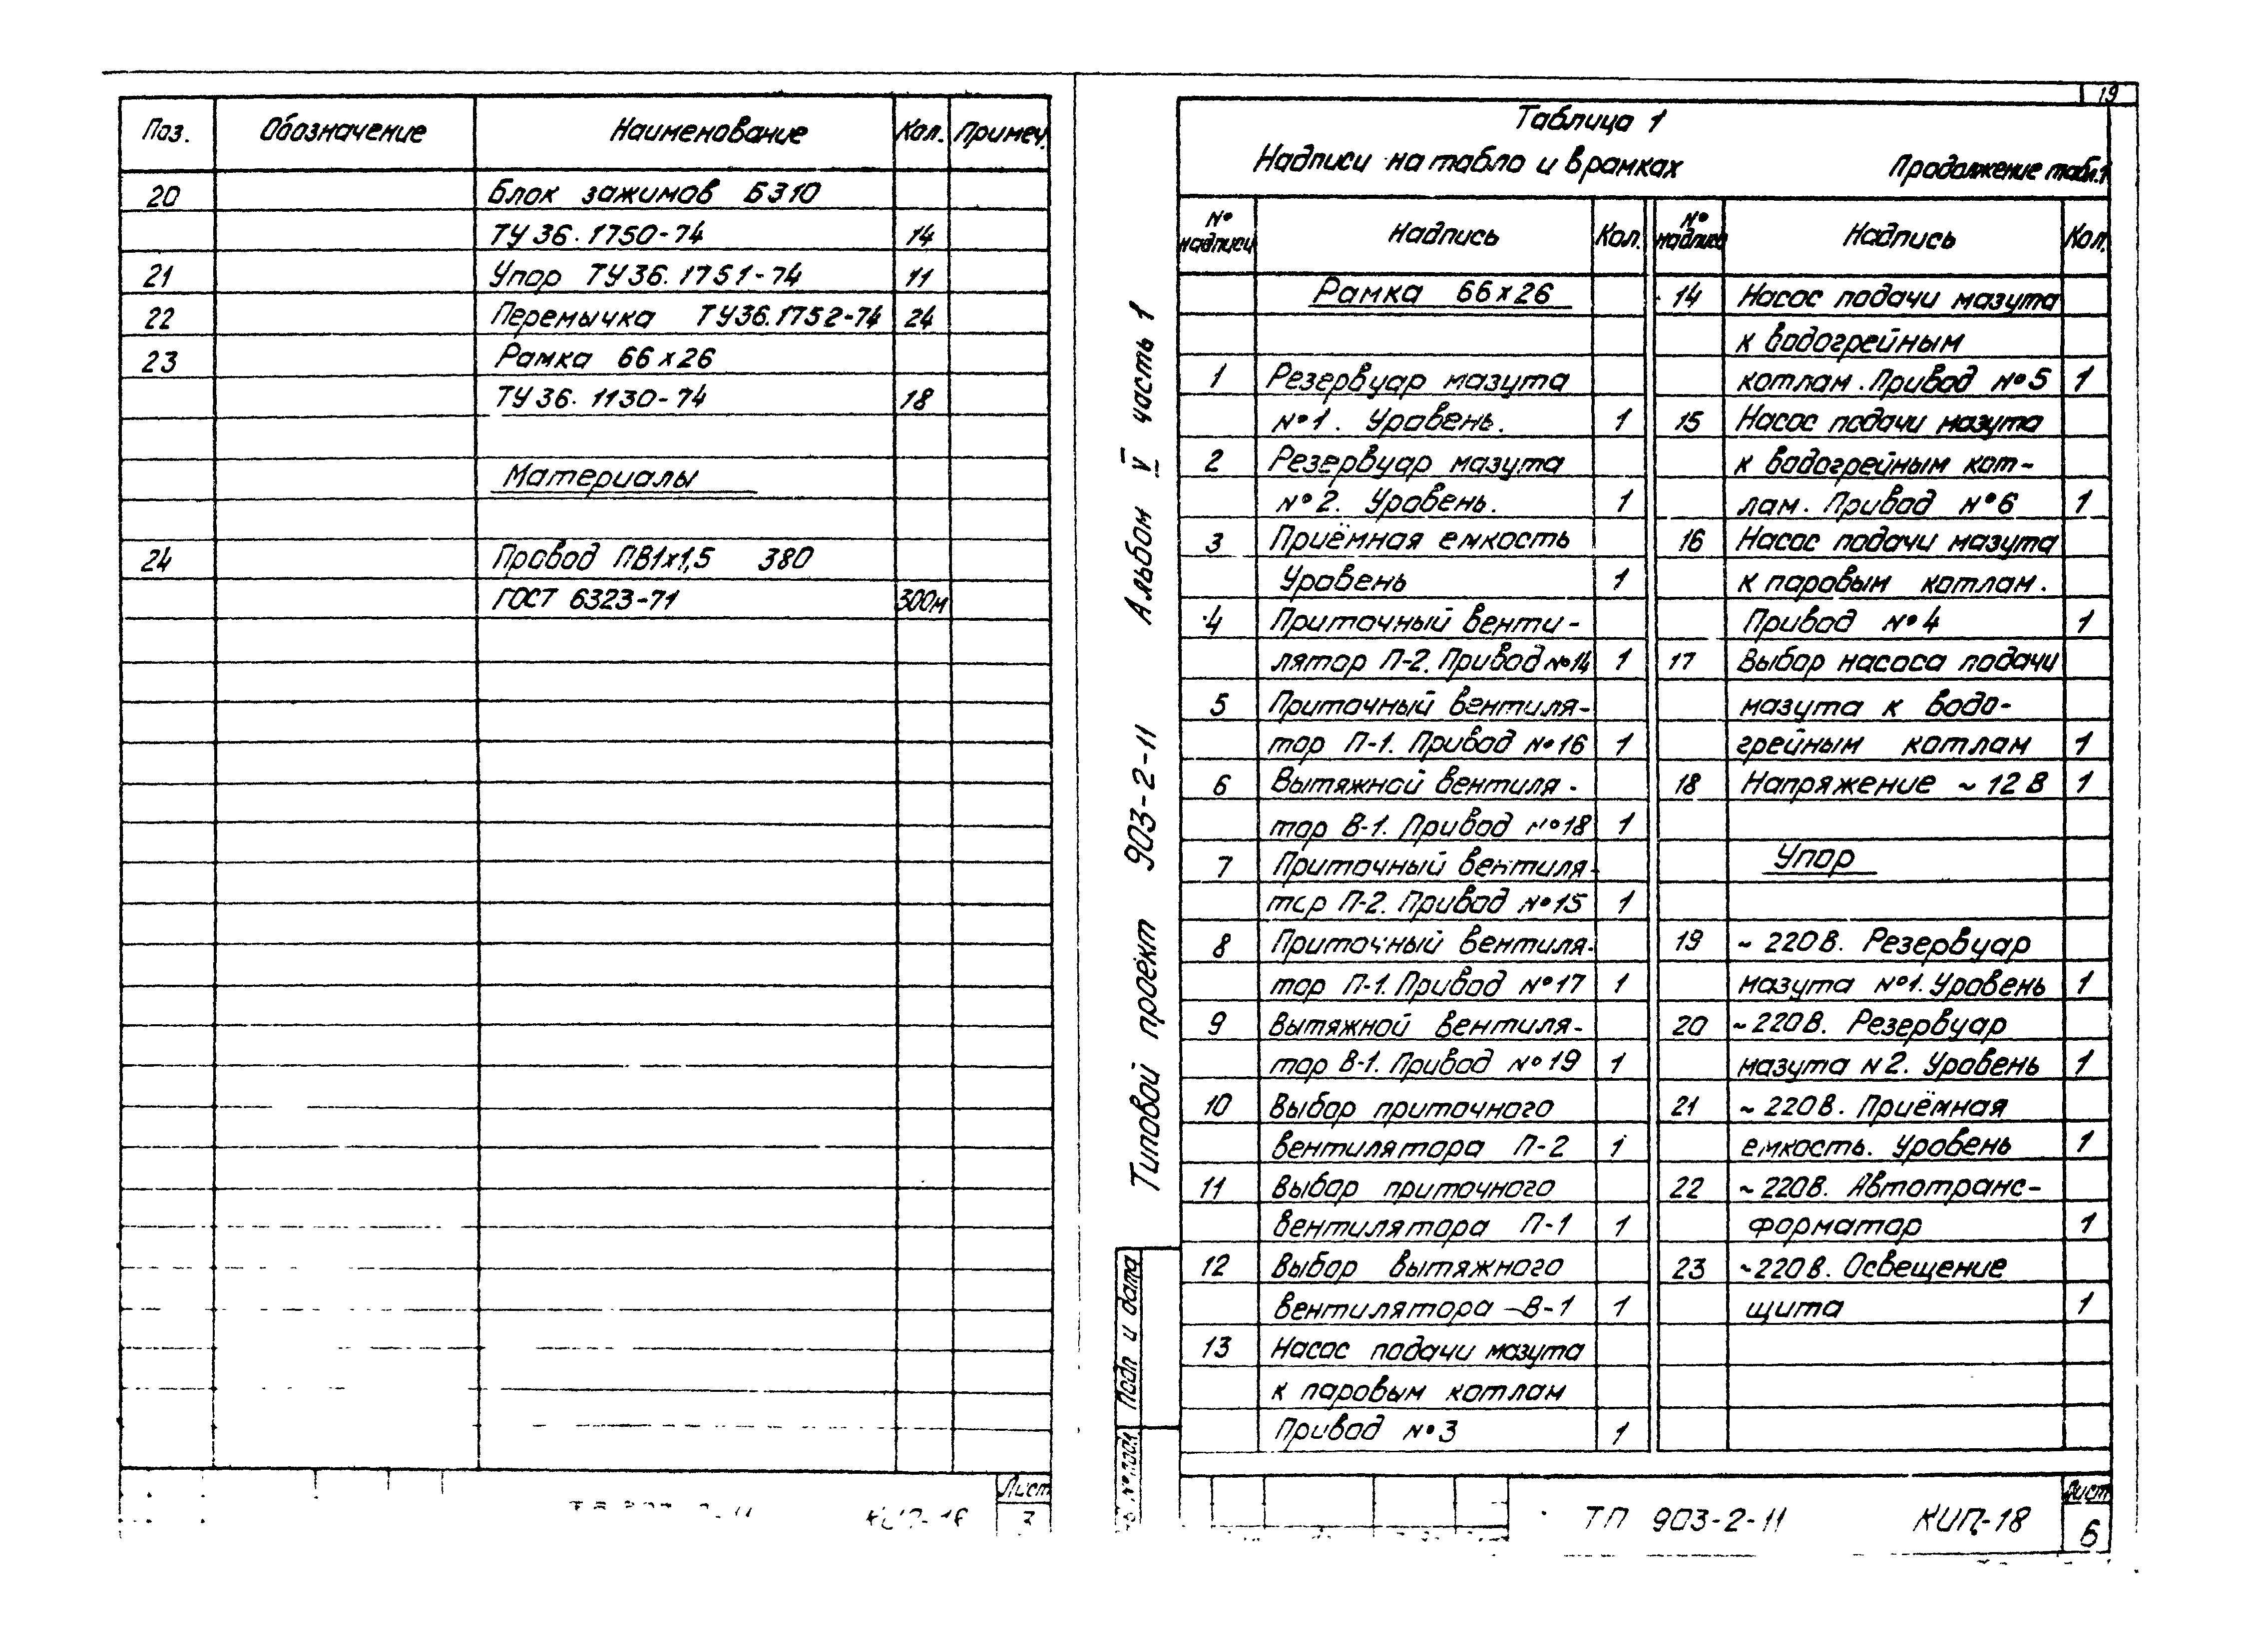 Поз. Обозначение Наименование Кол. Примеч.
20 Блок зажимов БЗ10
ТУ 36.1750-74 14
21 Упор ТУ36.1751-74 11
22 Перемычка ТУ36.1752-74 24
23 Рамка 66х26
ТУ 36.1130-74 18
Материалы
24 Провод ПВ1х1,5 380
ГОСТ 6323-71 300м
Лист
3
Типовой проект 903-2-11 Альбом V часть 1
Подп и дата
19
Таблица 1
Надписи на табло и в рамках
Продолжение табл.1
№ надписи Надпись Кол.
Рамка 66х26
1 Резервуар мазута
№1. Уровень. 1
2 Резервуар мазута
№2. Уровень. 1
3 Приёмная емкость
Уровень 1
4 Приточный венти-
лятор П-2. Привод №14 1
5 Приточный вентиля-
тор П-1. Привод №16 1
6 Вытяжной вентиля-
тор В-1. Привод №18 1
7 Приточный вентиля-
тор П-2. Привод №15 1
8 Приточный вентиля-
тор П-1. Привод №17 1
9 Вытяжной вентиля-
тор В-1. Привод №19 1
10 Выбор приточного
вентилятора П-2 1
11 Выбор приточного
вентилятора П-1 1
12 Выбор вытяжного
вентилятора В-1 1
13 Насос подачи мазута
к паровым котлам
Привод №3 1
№ надписи Надпись Кол.
14 Насос подачи мазута
к водогрейным
котлам. Привод №5 1
15 Насос подачи мазута
к водогрейным кот-
лам. Привод №6 1
16 Насос подачи мазута
к паровым котлам.
Привод №4 1
17 Выбор насоса подачи
мазута к водо-
грейным котлам 1
18 Напряжение ~ 12 В 1
Упор
19 ~ 220 В. Резервуар
мазута №1. Уровень 1
20 ~ 220 В. Резервуар
мазута №2. Уровень 1
21 ~ 220 В. Приёмная
емкость. Уровень 1
22 ~ 220 В. Автотранс-
форматор 1
23 ~ 220 В. Освещение
щита 1
ТП 903-2-11 КИП-18
Лист
6